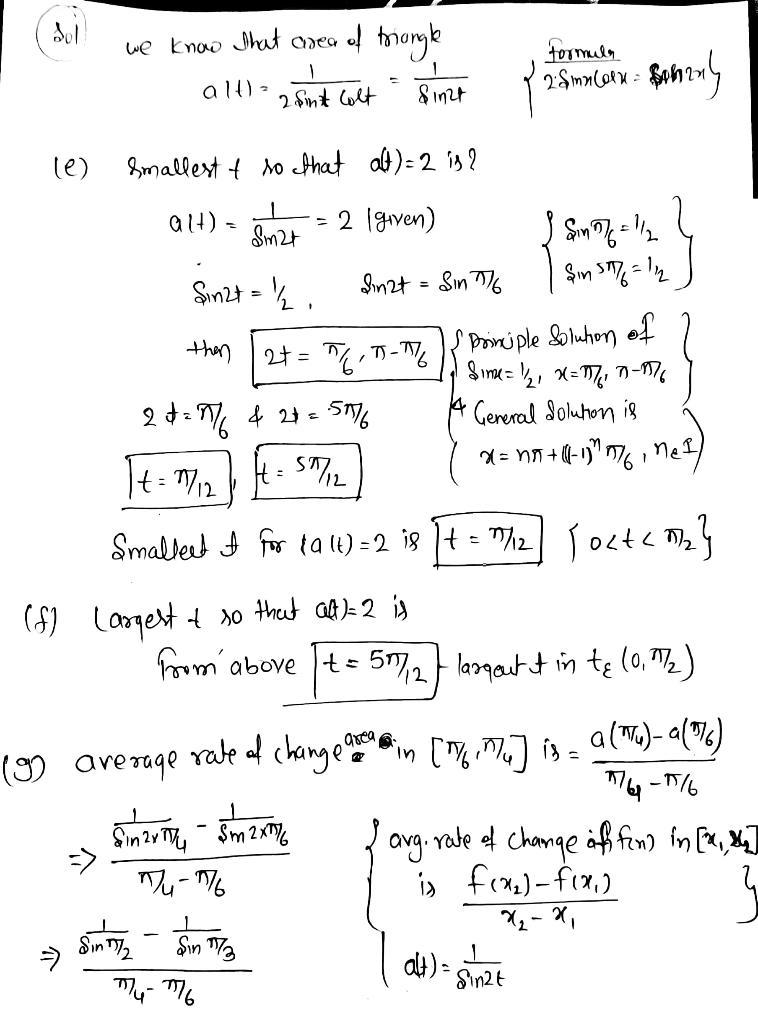 Sol
we know that area of triangle
a(t) = 1/(2 Sint Cost) = 1/Sin2t { formula 2·Sinx Cosx = Sin2x }
(e) Smallest t so that a(t)=2 is?
a(t) = 1/Sin2t = 2 (given) { Sin π/6 = 1/2
Sin2t = 1/2 , Sin2t = Sin π/6 Sin 5π/6 = 1/2 }
then 2t = π/6, π-π/6 { principle Solution of
Sinx = 1/2, x = π/6, π-π/6 }
2t = π/6 & 2t = 5π/6 & General Solution is
t = π/12, t = 5π/12 { x = nπ + (-1)^n π/6, n∈I }
Smallest t for (a(t)=2 is t = π/12 { 0<t<π/2 }
(f) Largest t so that a(t)=2 is
from above t = 5π/12 largest t in t∈(0, π/2)
(g) average rate of change area in [π/6, π/4] is = (a(π/4) - a(π/6))/(π/4 - π/6)
⇒ (1/Sin2×π/4 - 1/Sin2×π/6)/(π/4 - π/6) { avg. rate of change of f(x) in [x₁, x₂]
is (f(x₂) - f(x₁))/(x₂ - x₁) }
⇒ (1/Sin π/2 - 1/Sin π/3)/(π/4 - π/6) a(t) = 1/Sin2t